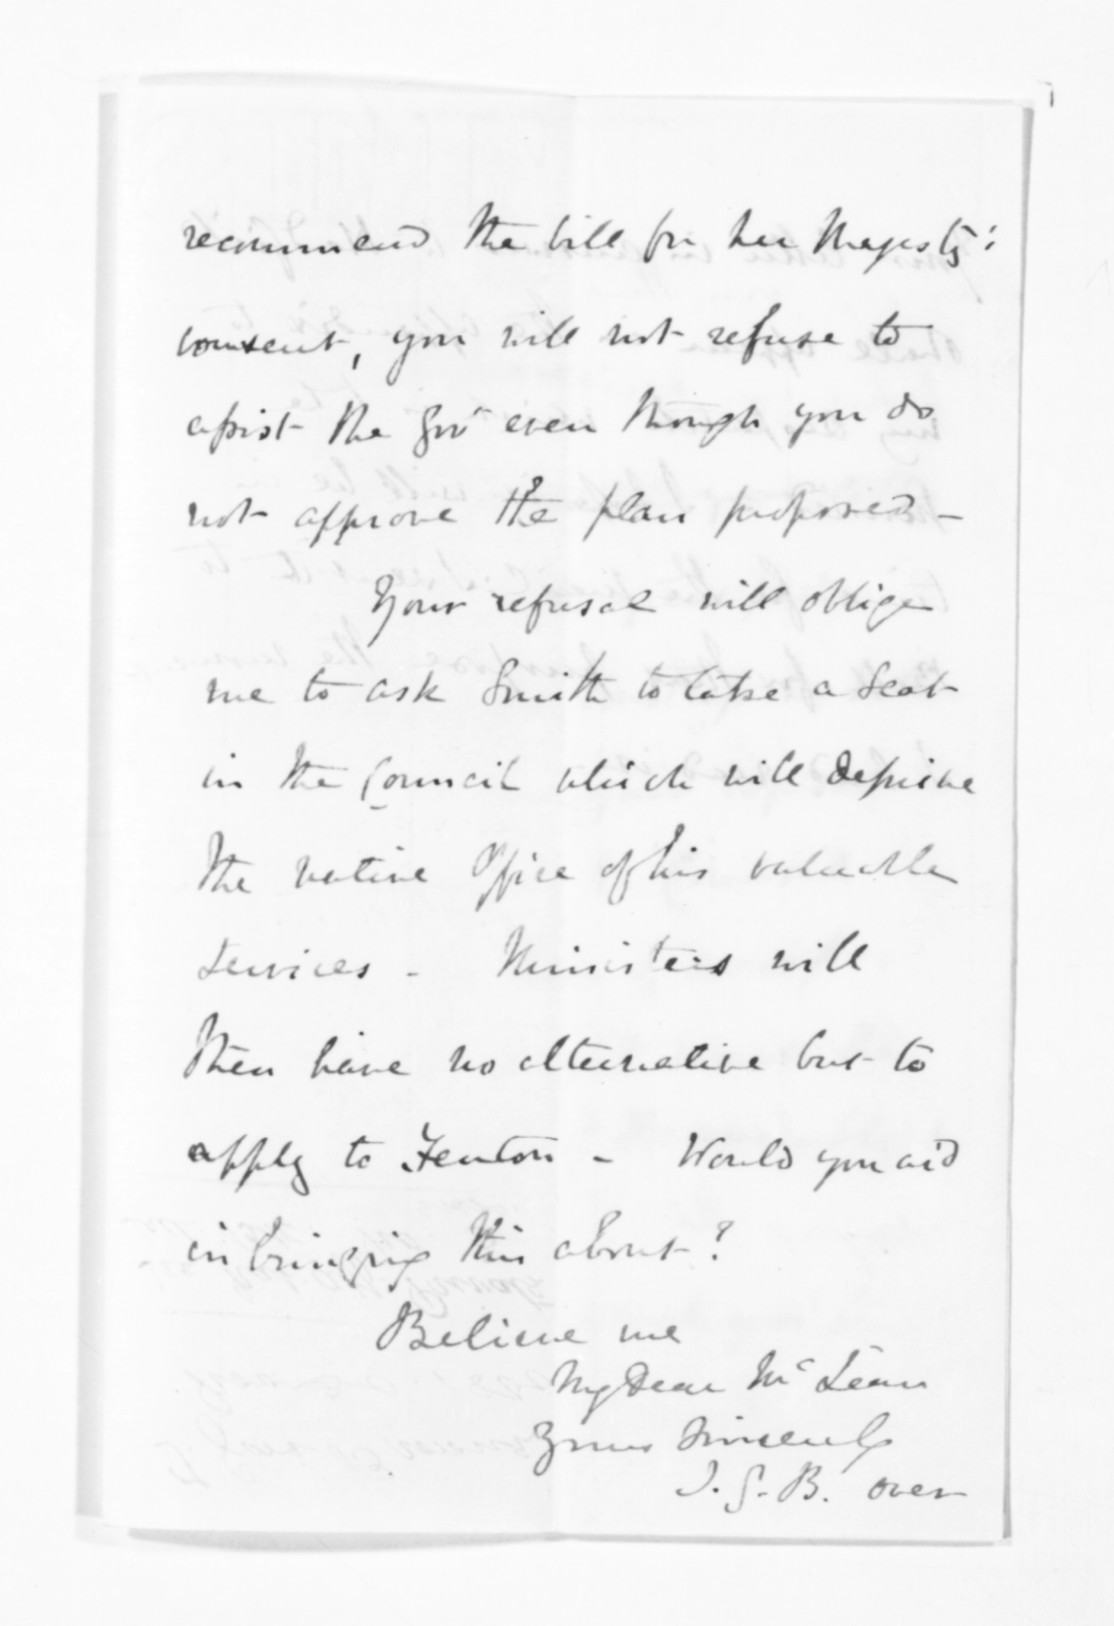 recommend the bill for her Majesty's
consent, you will not refuse to
assist the Govt even though you do
not approve the plan proposed -
Your refusal will oblige
me to ask Smith to take a Seat
in the Council which will deprive
the native Office of his valuable
services - Ministers will
then have no alternative but to
apply to Fenton - Would you aid
in bringing this about?
Believe me
My Dear McLean
Yours Sincerely
T. G. B. over